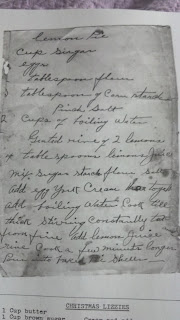 Lemon Pie
cup Sugar
eggs
tablespoon flour
tablespoon of Corn starch
pinch Salt
2 Cups of Boiling Water
Grated rine of 2 lemons
table spoons lemons juice
Mix Sugar starch flour Salt
Add egg yolk Cream
Add Boiling Water Cook till
thick Stirring Constantly
from fire Add lemon juice
rine Cook a few minutes longer
into Shell
CHRISTMAS LIZZIES
1 Cup butter
1 Cup brown sugar